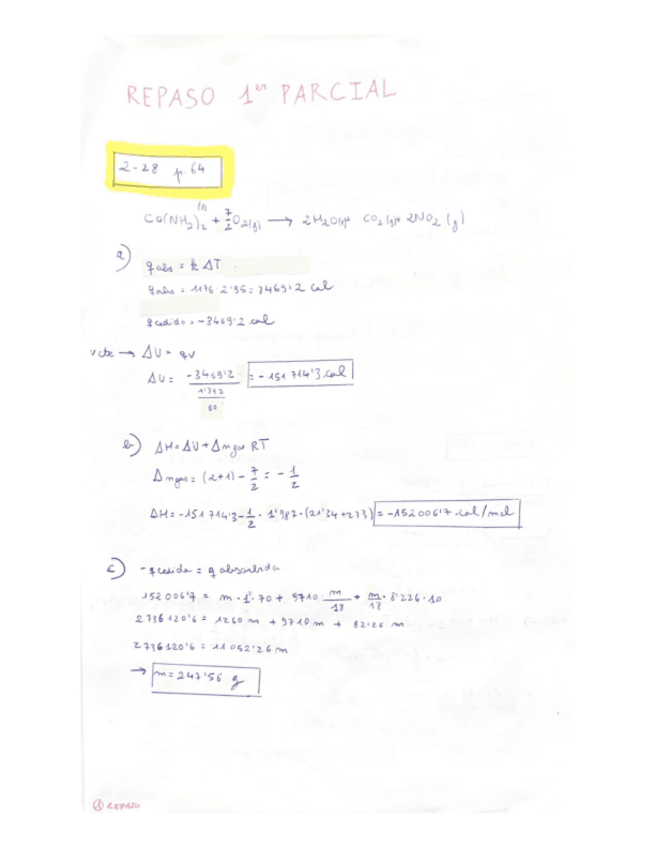 REPASO 1er PARCIAL
2-28 p. 64
CO(NH2)2 (s) + 7/2 O2(g) → 2H2O(l)+ CO2(g)+ 2NO2 (g)
a)
qabs = k ΔT
qabs = 1176·2'95 = 3469'2 cal
qcedido = -3469'2 cal
v cte → ΔU = qv
ΔU = -3469'2 / (1'372 / 60) = -151 714'3 cal
b) ΔH = ΔU + Δngas RT
Δngas = (2+1) - 7/2 = - 1/2
ΔH = -151 714'3 - 1/2 · 1'987 · (21'34 + 273) = -152006'7 cal/mol
c) -qcedida = q absorbida
152006'7 = m · 1 · 70 + 9710 · m/18 + m/18 · 8'226 · 10
2736120'6 = 1260 m + 9710 m + 82'26 m
2736120'6 = 11052'26 m
→ m = 247'56 g
① REPASO